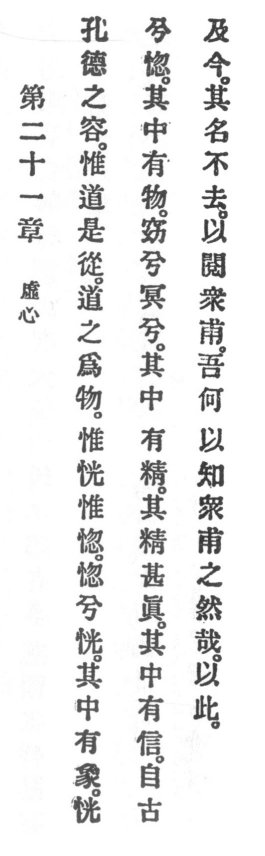 第二十一章 虛心
孔德之容。惟道是從。道之爲物。惟恍惟惚。惚兮恍。其中有象。恍
兮惚。其中有物。窈兮冥兮。其中有精。其精甚眞。其中有信。自古
及今。其名不去。以閱衆甫。吾何以知衆甫之然哉。以此。